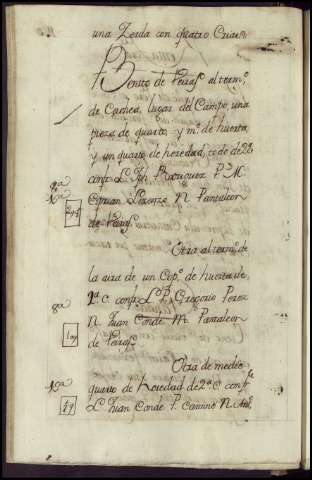 una Zerda con quatro Crias
Benito de Peiras al term.º
de Cachea, lugar del Campo, una
pieza de quarto, y m.º de huerta,
y un quarto de heredad, todo de 2.ª
confr. L. Jph. Rodriguez P.
8.ª
10.ª Ciprian Lorenzo N. Pantaleon
de Peiras
Otra al term.º de
la aira de un Cop.º de huerta de
1.ª C. confr. L. Gregorio Perez
8.ª
N. Juan Conde M. Pantaleon
de Peiras
Otra de medio
10.ª quarto de heredad de 2.ª C. confr.
L. Juan Conde P. Camino N.